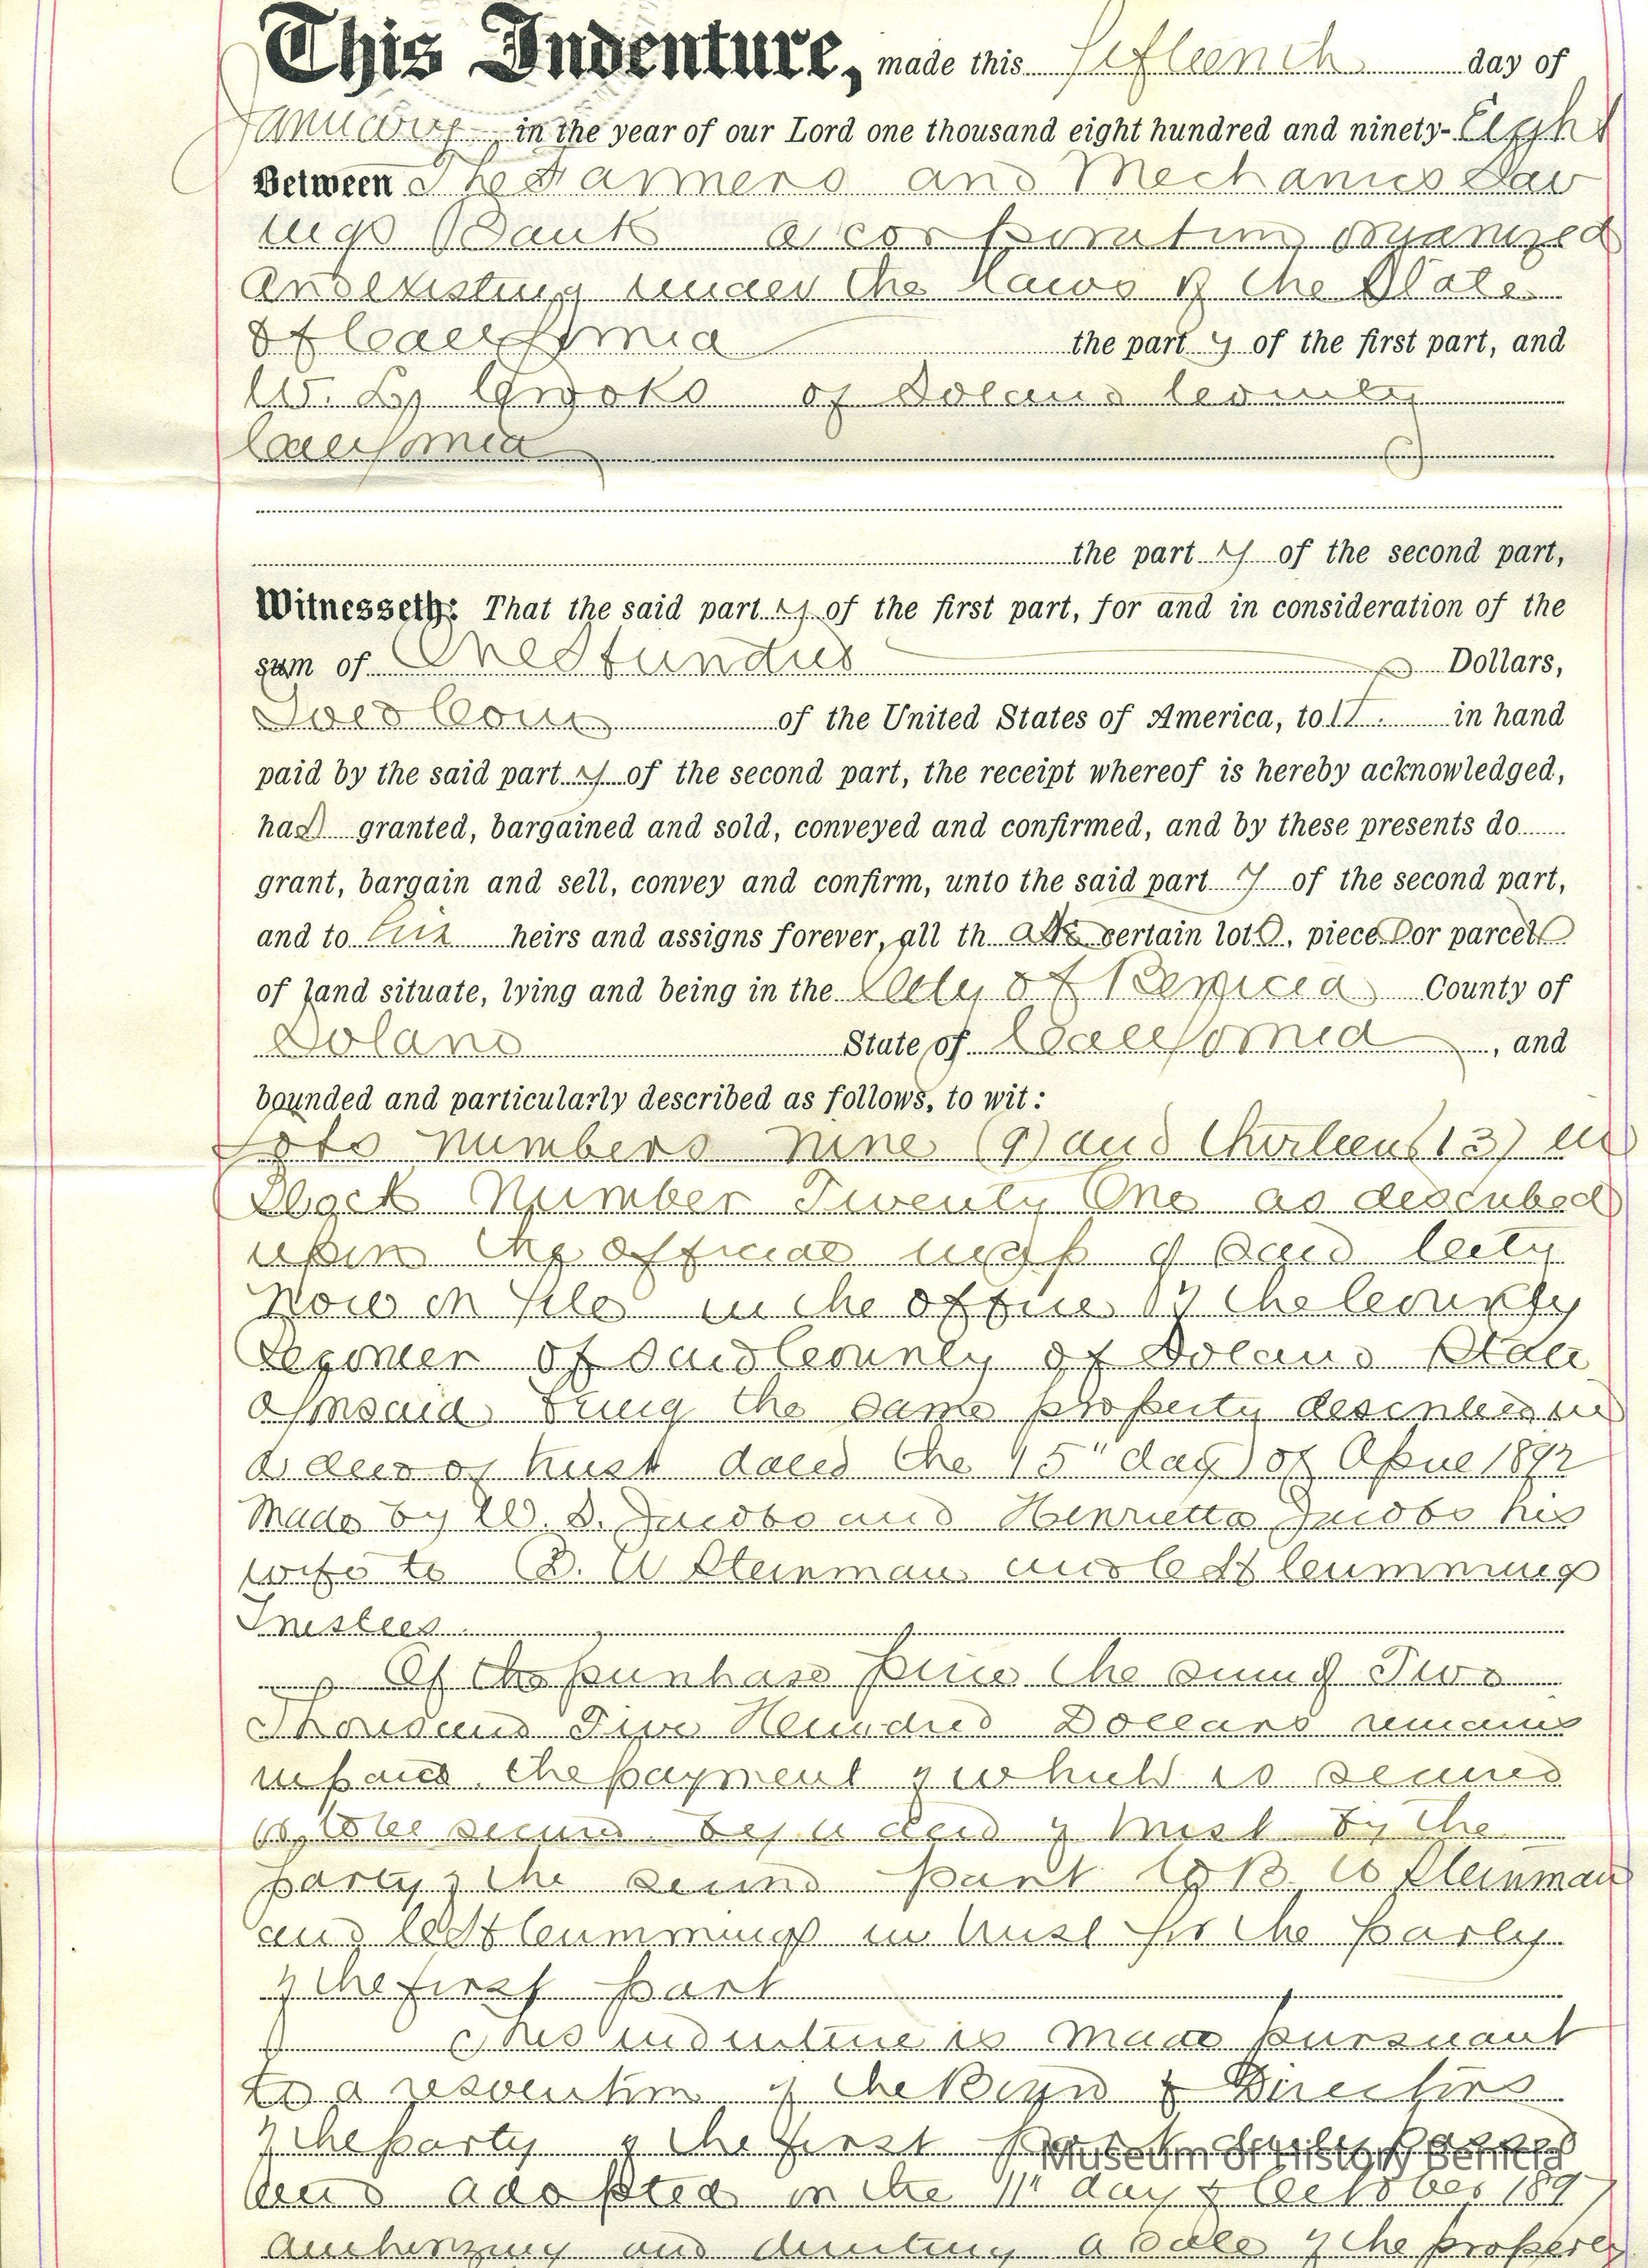 This Indenture, made this fifteenth day of
January in the year of our Lord one thousand eight hundred and ninety-Eight
Between The Farmers and Mechanics Sav
ings Bank a corporation organized
and existing under the laws of the State
of California the party of the first part, and
W. L. Crooks of Solano County
California
the party of the second part,
Witnesseth: That the said party of the first part, for and in consideration of the
sum of One Hundred Dollars,
Gold Coin of the United States of America, to it in hand
paid by the said party of the second part, the receipt whereof is hereby acknowledged,
had granted, bargained and sold, conveyed and confirmed, and by these presents do
grant, bargain and sell, convey and confirm, unto the said party of the second part,
and to his heirs and assigns forever, all th certain lots, pieces or parcels
of land situate, lying and being in the City of Benicia County of
Solano State of California, and
bounded and particularly described as follows, to wit:
Lots numbers nine (9) and thirteen (13) in
Block Number Twenty One as described
upon the official map of said City
now on file in the office of the County
Recorder of said County of Solano State
aforesaid being the same property described in
a deed of trust dated the 15" day of April 1892
made by W. S. Jacobs and Henrietta Jacobs his
wife to B. U Steinman and C H Cummings
Trustees.
Of the purchase price the sum of Two
Thousand Five Hundred Dollars remains
unpaid. the payment of which is secured
or to be secured by a deed of trust by the
party of the second part to B. U Steinman
and C H Cummings in trust for the party
of the first part
This indenture is made pursuant
to a resolution of the Board of Directors
of the party of the first part duly passed
and adopted on the 11" day of October 1897
authorizing and directing a sale of the property
Museum of History Benicia